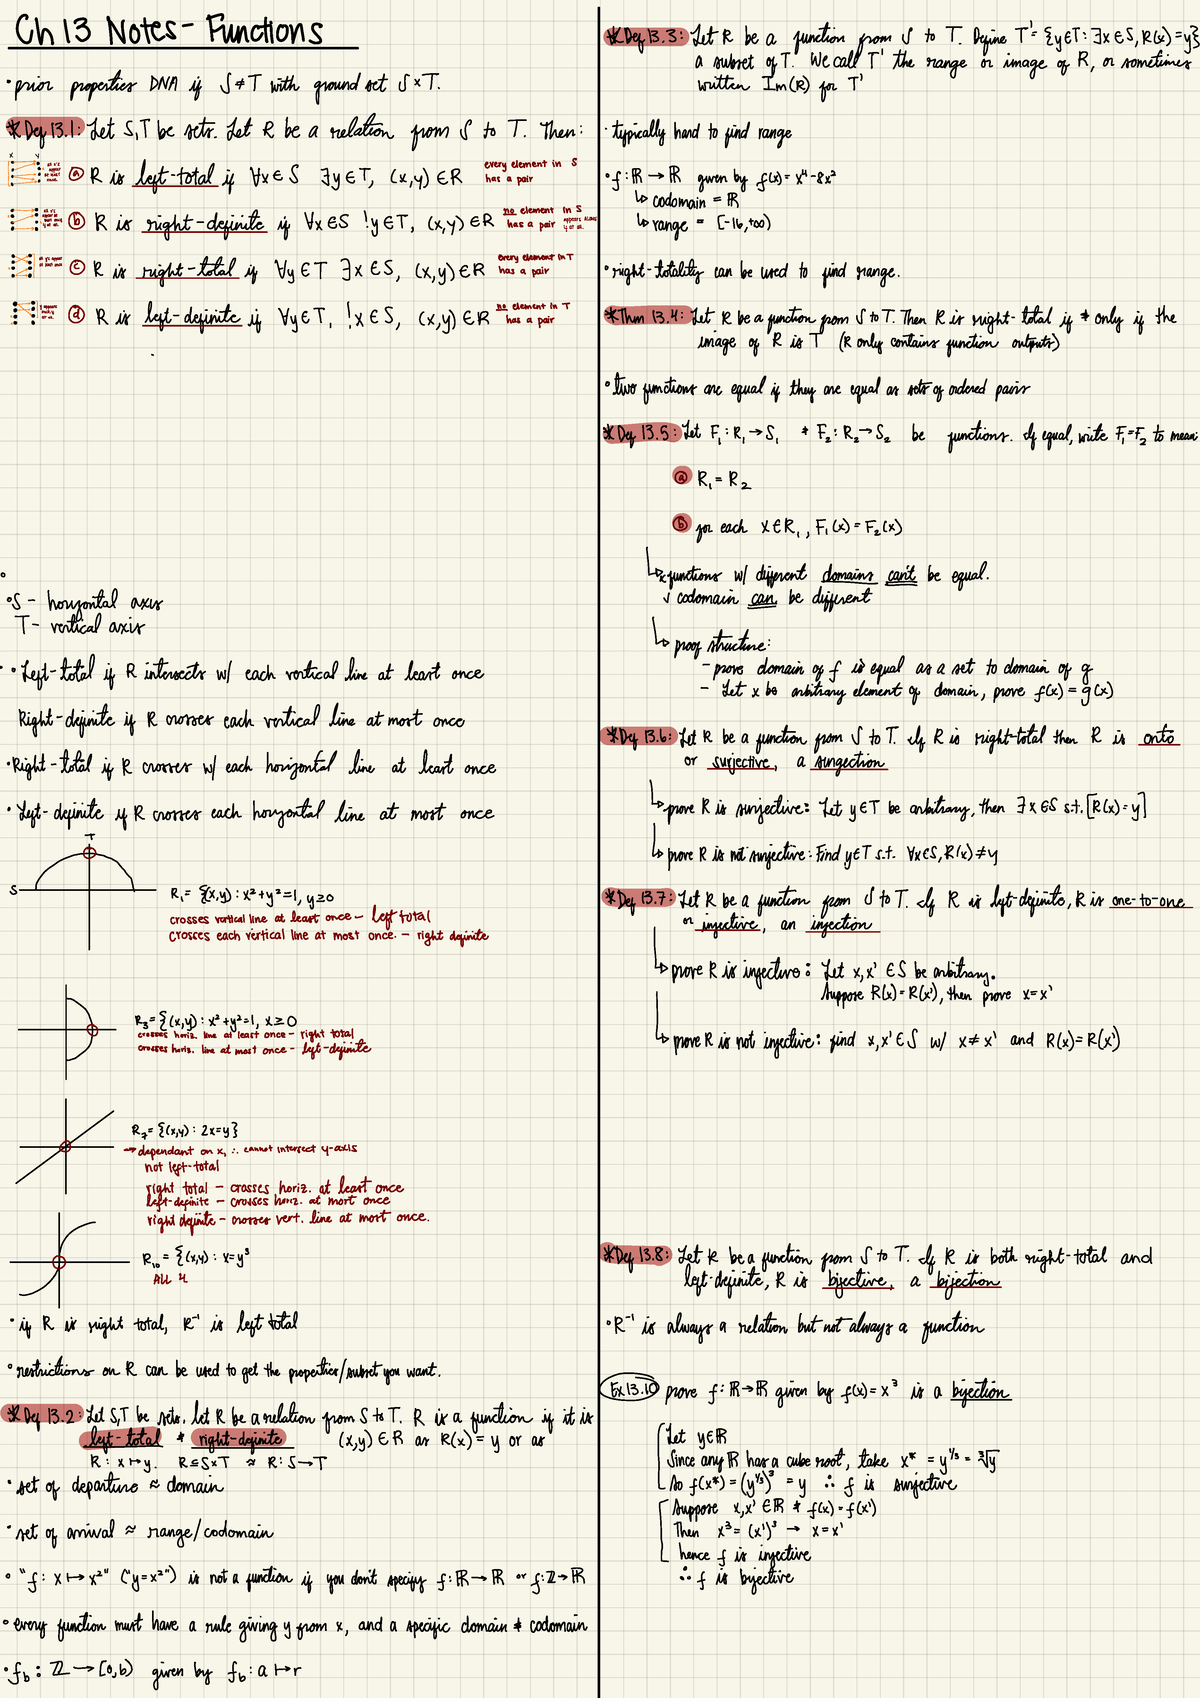 Ch 13 Notes - Functions
•prior properties DNA if S≠T with ground set S×T.
*Def 13.1: Let S,T be sets. Let R be a relation from S to T. Then:
ⓐ R is left-total if ∀x∈S ∃y∈T, (x,y)∈R
every element in S
has a pair
ⓑ R is right-definite if ∀x∈S !y∈T, (x,y)∈R
no element in S
has a pair
ⓒ R is right-total if ∀y∈T ∃x∈S, (x,y)∈R
every element in T
has a pair
ⓓ R is left-definite if ∀y∈T, !x∈S, (x,y)∈R
no element in T
has a pair
•S - horizontal axis
T - vertical axis
•Left-total if R intersects w/ each vertical line at least once
Right-definite if R crosses each vertical line at most once
•Right-total if R crosses w/ each horizontal line at least once
•Left-definite if R crosses each horizontal line at most once
T
S
R₁ = {(x,y) : x²+y²=1, y≥0
crosses vertical line at least once - left total
crosses each vertical line at most once. - right definite
R₃ = {(x,y) : x²+y²=1, x≥0
crosses horiz. line at least once - right total
crosses horiz. line at most once - left-definite
R₇ = {(x,y) : 2x=y}
→ dependant on x, ∴ cannot intersect y-axis
not left-total
right total - crosses horiz. at least once
left-definite - crosses horiz. at most once
right definite - crosses vert. line at most once.
R₁₀ = {(x,y) : x=y³
ALL 4
•if R is right total, R⁻¹ is left total
•restrictions on R can be used to get the properties/subset you want.
*Def 13.2: Let S,T be sets. let R be a relation from S to T. R is a function if it is
left-total & right-definite (x,y)∈R as R(x)=y or as
R: x↦y. R⊆S×T ≈ R:S→T
•set of departure ≈ domain
•set of arrival ≈ range/codomain
•"f: x↦x²" ("y=x²") is not a function if you don't specify f:ℝ→ℝ or f:ℤ→ℝ
•every function must have a rule giving y from x, and a specific domain & codomain
•f_b : ℤ→[0,b) given by f_b : a↦r
*Def 13.3: Let R be a function from S to T. Define T' = {y∈T: ∃x∈S, R(x)=y}
a subset of T. We call T' the range or image of R, or sometimes
written Im(R) for T'
•typically hard to find range
•f:ℝ→ℝ given by f(x)=x⁴-8x²
↳ codomain = ℝ
↳ range = [-16,+∞)
•right-totality can be used to find range.
*Thm 13.4: Let R be a function from S to T. Then R is right-total if & only if the
image of R is T (R only contains function outputs)
•two functions are equal if they are equal as sets of ordered pairs
*Def 13.5: Let F₁:R₁→S₁ & F₂:R₂→S₂ be functions. If equal, write F₁=F₂ to mean:
ⓐ R₁=R₂
ⓑ for each x∈R₁, F₁(x)=F₂(x)
↳x functions w/ different domains can't be equal.
✓ codomain can be different
↳ proof structure:
- prove domain of f is equal as a set to domain of g
- Let x be arbitrary element of domain, prove f(x)=g(x)
*Def 13.6: Let R be a function from S to T. If R is right-total then R is onto
or surjective, a surgection
↳ prove R is surjective: Let y∈T be arbitrary, then ∃x∈S s.t. [R(x)=y]
↳ prove R is not surjective: Find y∈T s.t. ∀x∈S, R(x)≠y
*Def 13.7: Let R be a function from S to T. If R is left-definite, R is one-to-one
or injective, an injection
↳ prove R is injective: Let x,x' ∈S be arbitrary.
Suppose R(x)=R(x'), then prove x=x'
↳ prove R is not injective: find x,x'∈S w/ x≠x' and R(x)=R(x')
*Def 13.8: Let R be a function from S to T. If R is both right-total and
left-definite, R is bijective, a bijection
•R⁻¹ is always a relation but not always a function
Ex 13.10 prove f:ℝ→ℝ given by f(x)=x³ is a bijection
Let y∈ℝ
Since any ℝ has a cube root, take x* = y^(1/3) = ∛y
So f(x*) = (y^(1/3))³ = y ∴ f is surjective
Suppose x,x'∈ℝ & f(x)=f(x')
Then x³=(x')³ → x=x'
hence f is injective
∴ f is bijective